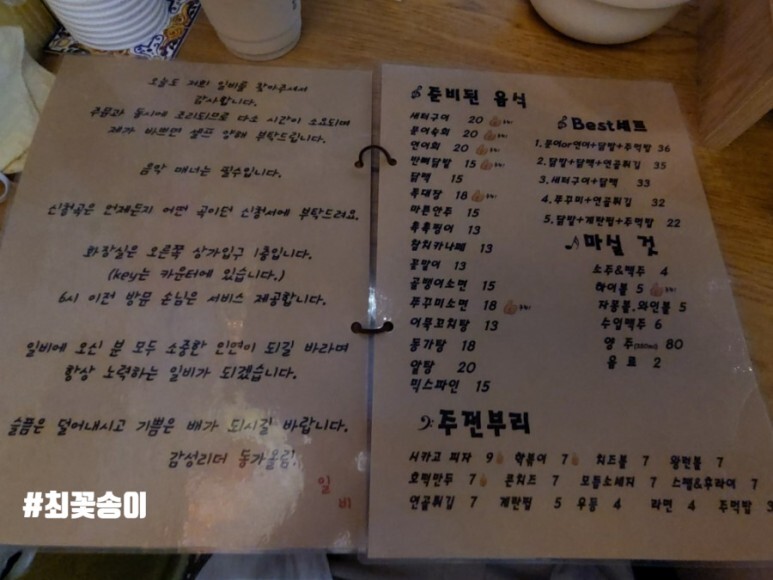 오늘도 저희 일비를 찾아주셔서
감사합니다.
주문과 동시에 조리되므로 다소 시간이 소요되며
제가 바쁘면 셀프 양해 부탁드립니다.
음악 매너는 필수입니다.
신청곡은 언제든지 어떤 곡이던 신청서에 부탁드려요.
화장실은 오른쪽 상가입구 1층입니다.
(key는 카운터에 있습니다.)
6시 이전 방문 손님은 서비스 제공합니다.
일비에 오신 분 모두 소중한 인연이 되길 바라며
항상 노력하는 일비가 되겠습니다.
슬픔은 덜어내시고 기쁨은 배가 되시길 바랍니다.
감성리더 동가올림!
일비
준비된 음식
새터구이 20
문어숙회 20
연어회 20
반뼈닭발 15
닭팩 15
목대장 18
마른안주 15
훅훅찜어 13
참치카나페 13
꽃말이 13
골뱅이소면 15
쭈꾸미소면 18
어묵꼬치탕 13
동가탕 18
알탕 20
믹스파인 15
Best세트
1. 문어or연어+닭발+주먹밥 36
2. 닭발+닭팩+연골튀김 35
3. 새터구이+닭팩 33
4. 쭈꾸미+연골튀김 32
5. 닭발+계란찜+주먹밥 22
마실 것
소주&맥주 4
하이볼 5
자몽볼, 와인볼 5
수입맥주 6
양주 80
음료 2
주전부리
시카고 피자 9 떡볶이 7 치즈볼 7 왕먼볼 7
호떡만두 7 콘치즈 7 모듬소세지 7 스팸&후라이 7
연골튀김 7 계란찜 5 우동 4 라면 4 주먹밥 3
#최꽃송이